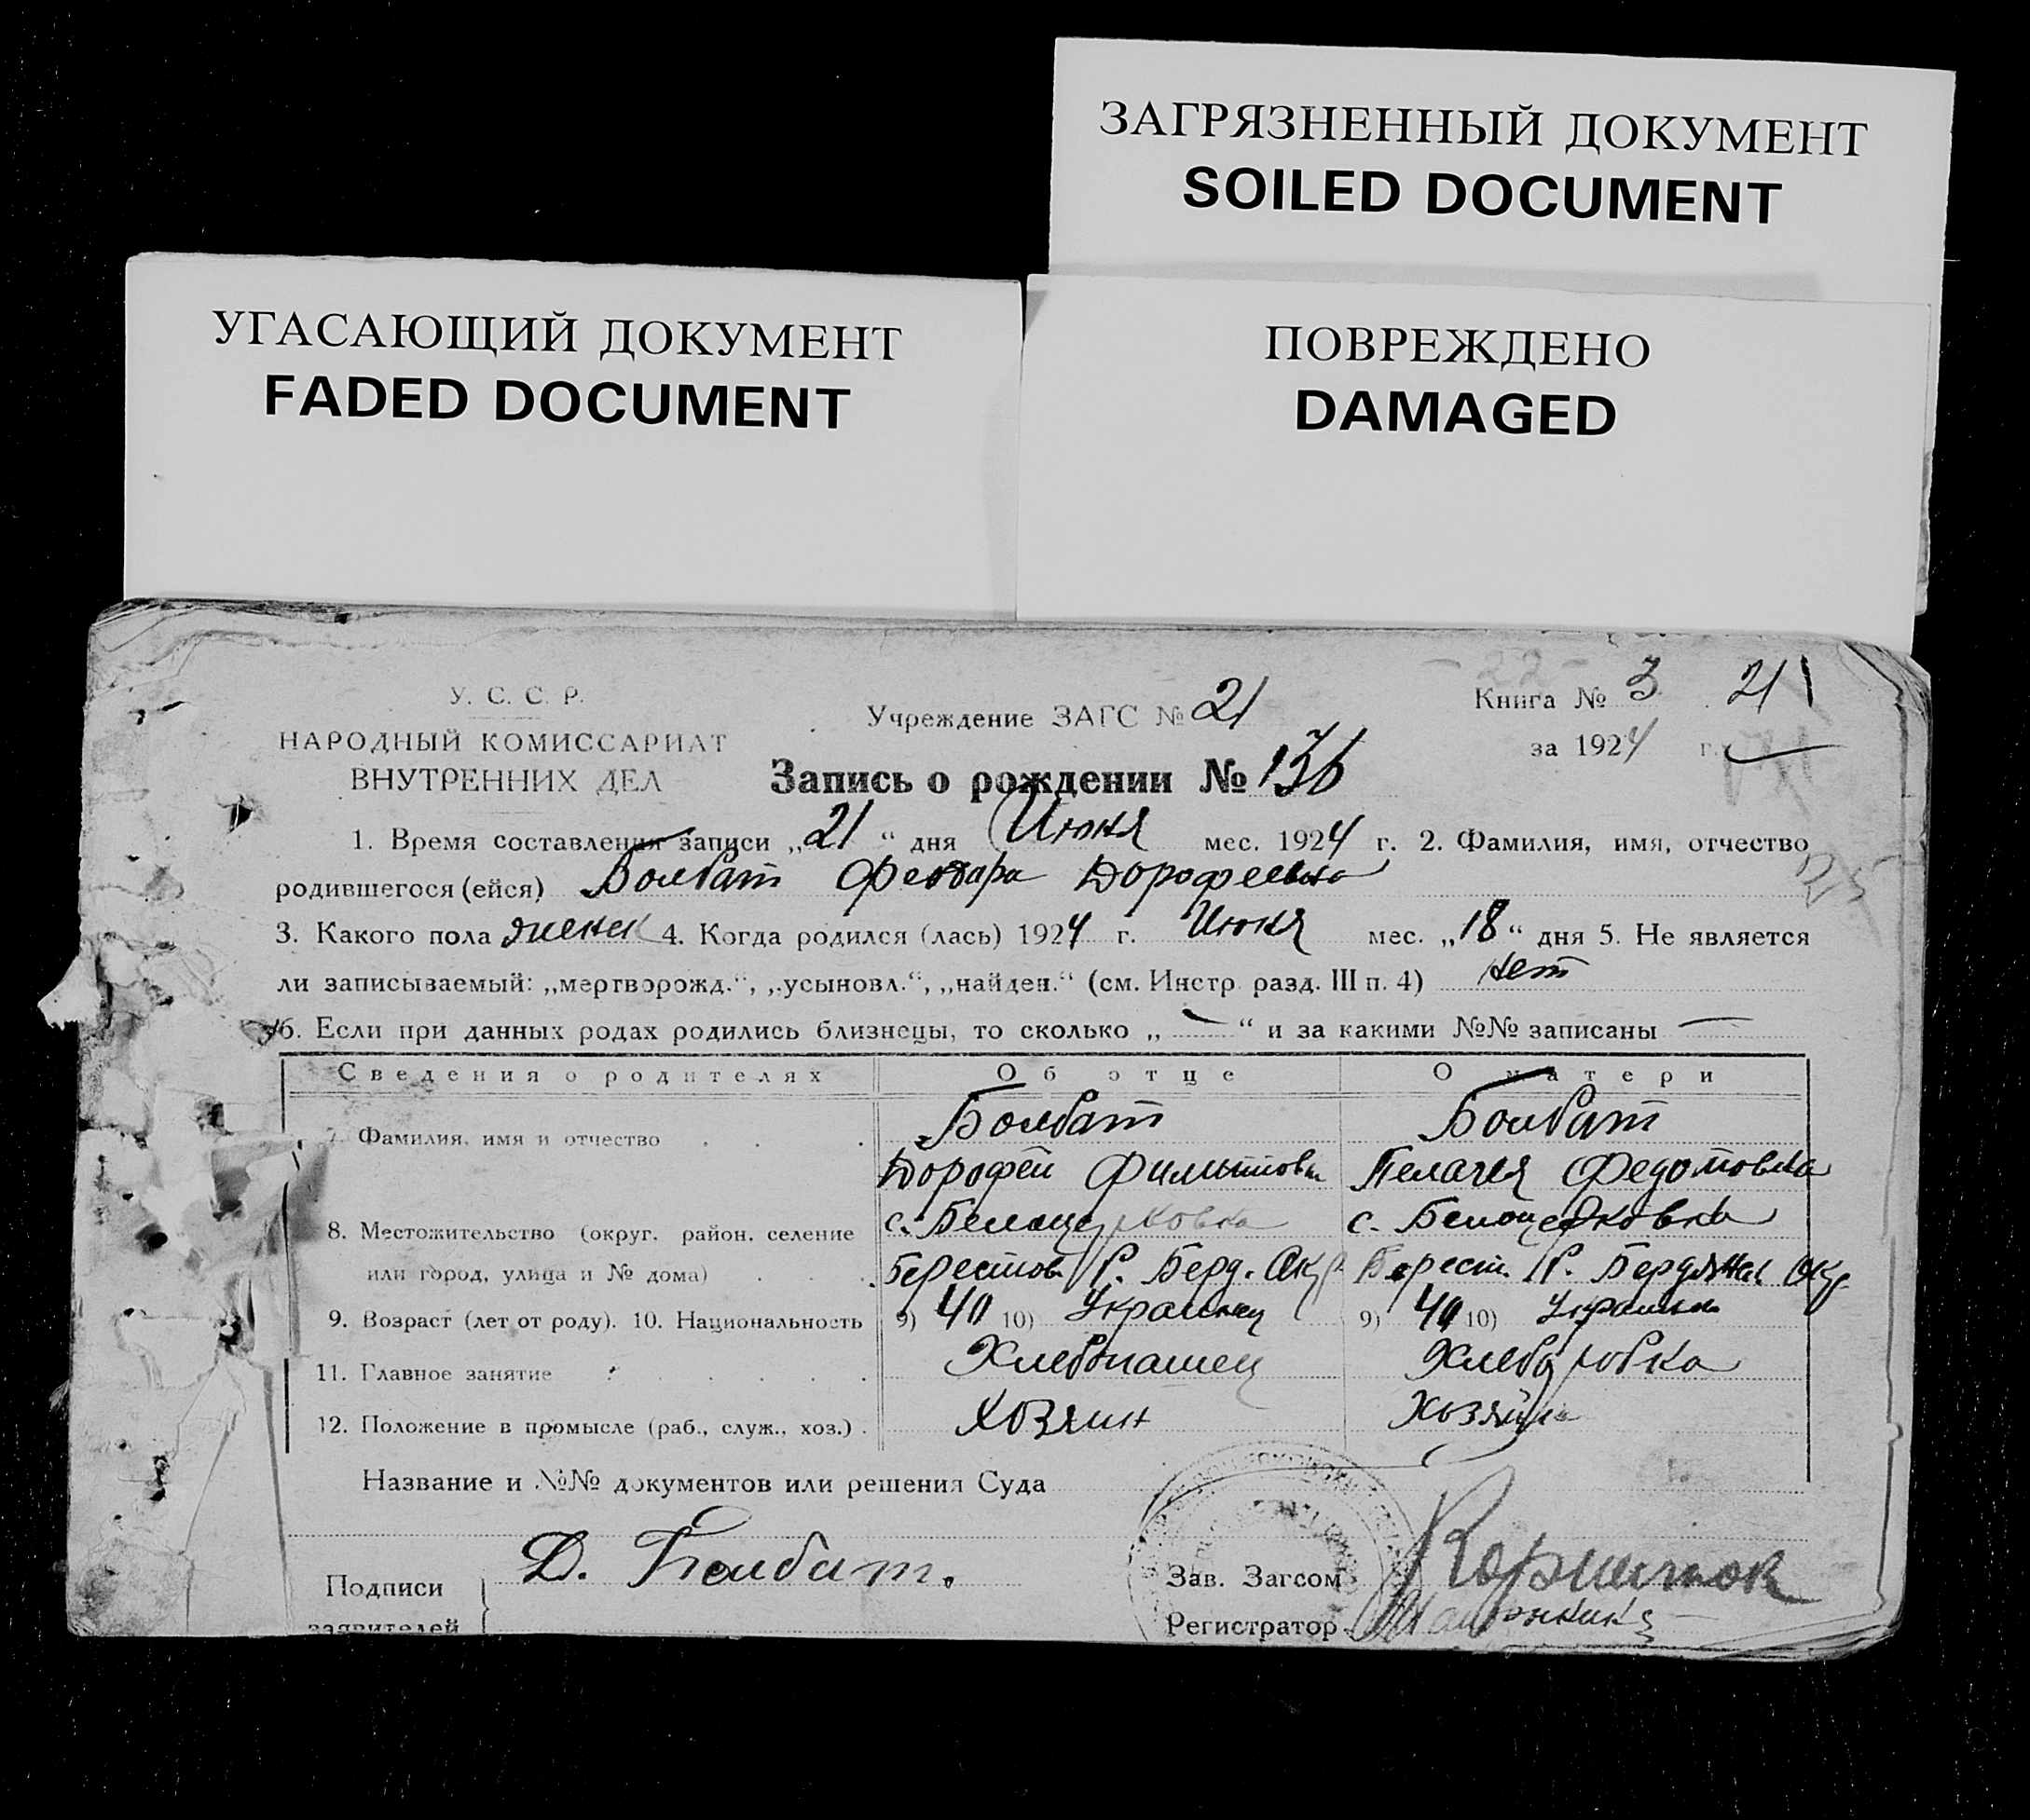 ЗАГРЯЗНЕННЫЙ ДОКУМЕНТ
SOILED DOCUMENT
УГАСАЮЩИЙ ДОКУМЕНТ
FADED DOCUMENT
ПОВРЕЖДЕНО
DAMAGED
- 22 -
У. С. С. Р.
НАРОДНЫЙ КОМИССАРИАТ
ВНУТРЕННИХ ДЕЛ
Учреждение ЗАГС № 21
Книга № 3 21
за 1924 г.
Запись о рождении № 136
1. Время составления записи „21“ дня Июня мес. 1924 г. 2. Фамилия, имя, отчество
родившегося (ейся) Болбат Феодора Дорофеевна
3. Какого пола женск 4. Когда родился (лась) 1924 г. Июня мес. „18“ дня 5. Не является
ли записываемый: „мертворожд.“, „усыновл.“, „найден.“ (см. Инстр. разд. III п. 4) нет
6. Если при данных родах родились близнецы, то сколько „ — “ и за какими №№ записаны —
Сведения о родителях Об отце О матери
7. Фамилия, имя и отчество Болбат Болбат
Дорофей Пелагея Федотовна
8. Местожительство (округ, район, селение с. Белоцерковка с. Белоцерковка
или город, улица и № дома) Берестов. Р. Берд. Окр Берест. Р. Бердянск Окр.
9. Возраст (лет от роду). 10. Национальность 9) 40 10) Украинец 9) 40 10)
11. Главное занятие Хлебопашец Хлеборобка
12. Положение в промысле (раб., служ., хоз.) Хозяин Хозяйка
Название и №№ документов или решения Суда
Подписи Д. Болбат. Зав. Загсом
заявителей Регистратор